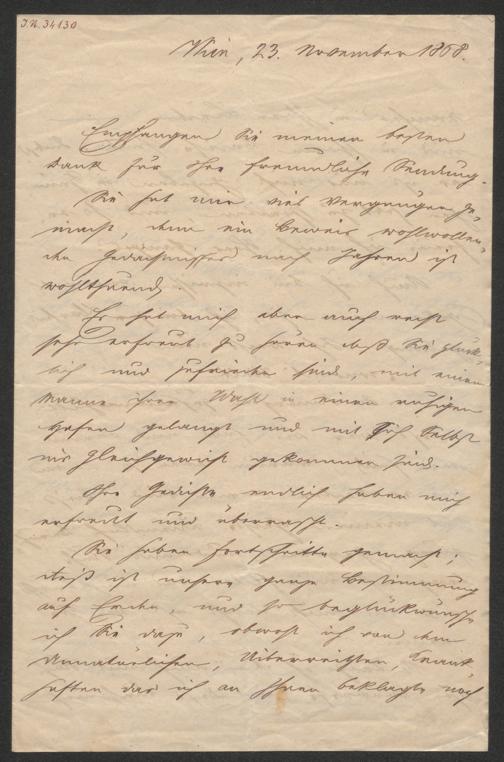 J.N. 34130
Wien, 23. November 1868.
Empfangen Sie meinen besten
Dank für Ihre freundliche Sendung.
Sie hat mir viel Vergnügen ge-
macht, denn ein Beweis wohlwollen-
den Gedächtnisses nach Jahren ist
wohlthuend.
Es hat mich aber auch recht
sehr erfreut zu hören daß Sie glück-
lich und zufrieden sind, mit einem
Manne Ihrer Wahl in einen ruhigen
Hafen gelangt und mit Sich Selbst
ins Gleichgewicht gekommen sind.
Ihre Gedichte endlich haben mich
erfreut und überrascht.
Sie haben Fortschritte gemacht;
dieß ist unsere ganze Bestimmung
auf Erden, und so beglückwünsche
ich Sie dazu, obwohl ich von dem
Unnatürlichen, Überreitzten, Krank-
haften das ich an Ihnen beklagte noch